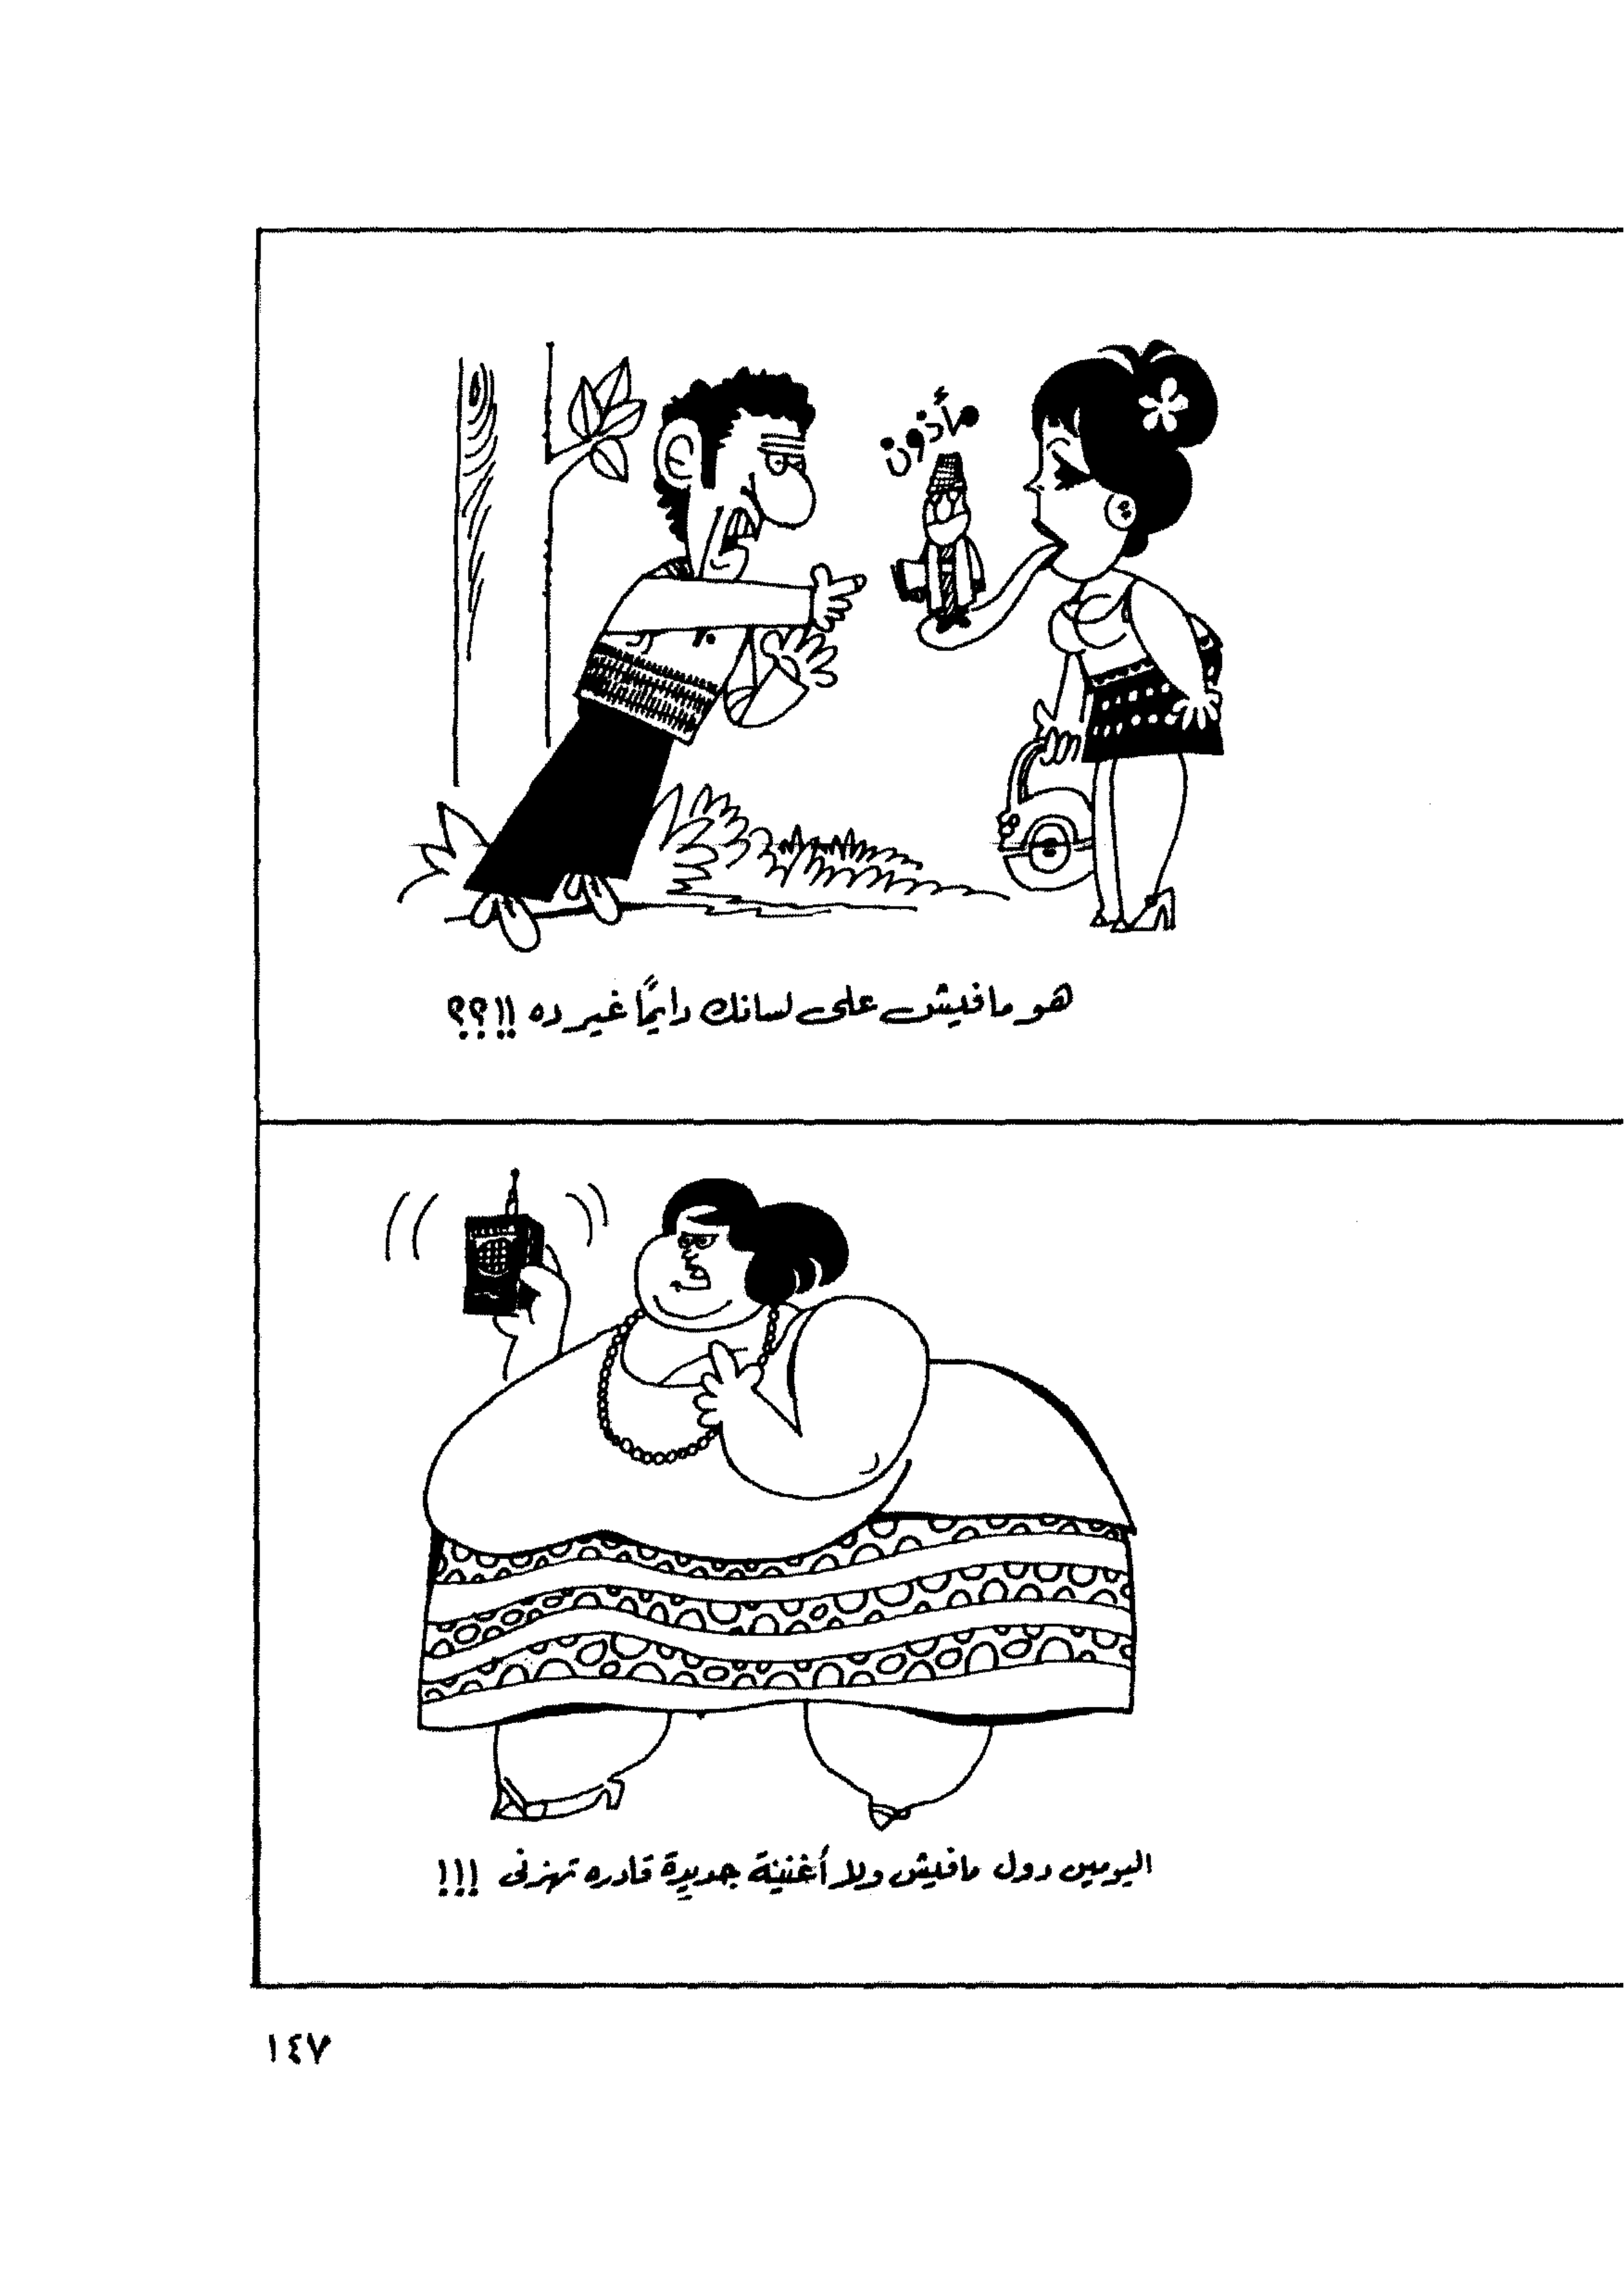 مأذون
هو مافيش على لسانك دايمًا غير ده !!؟؟
اليومين دول مافيش ولا أغنية جديدة قادره تهزنى !!!
١٤٧